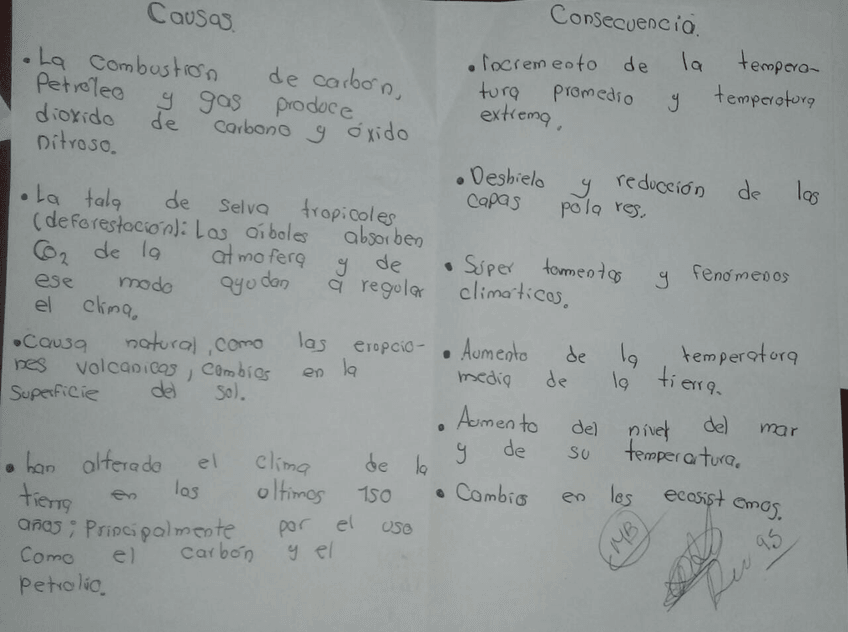 Causas.
• La Combustión de carbón,
Petróleo y gas produce
dioxido de carbono y óxido
nitroso.
• La tala de selva tropicales
(deforestación): Los árboles absorben
CO2 de la atmofera y de
ese modo ayudan a regular
el clima.
• Causa natural, como las eropcio-
nes volcanicas, cambios en la
Superficie del sol.
• han alterado el clima de la
tierra en los ultimos 150
años; Principalmente por el uso
Como el carbón y el
petrolio.
Consecuencia.
• Incremento de la tempera-
tura promedio y temperatura
extrema.
• Deshielo y reducción de las
capas polares.
• Súper tormentas y fenómenos
climáticos.
• Aumento de la temperatura
media de la tierra.
• Aumento del nivel del mar
y de su temperatura.
• Cambio en los ecosistemas.
MB
95